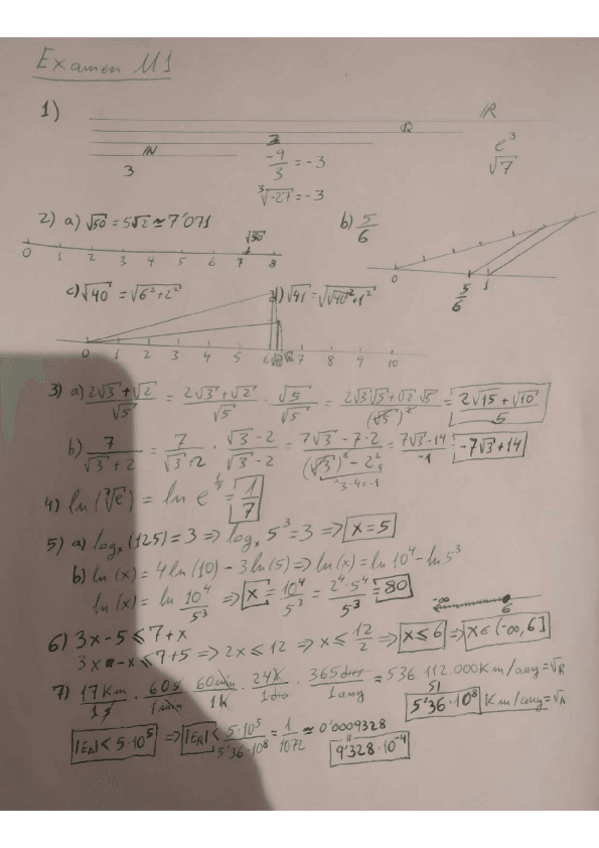 Examen M1
1)
ℝ
ℚ
ℤ
ℕ
3
-9/3 = -3
∛-27 = -3
e³
√7
2) a) √50 = 5√2 ≃ 7'071
√50
0 1 2 3 4 5 6 7 8
b) 5/6
0 5/6 1
c) √40 = √6²+2²
d) √41 = √√40²+1²
0 1 2 3 4 5 6 √40 √41 7 8 9 10
3) a) (2√3+√2)/√5 = (2√3+√2)/√5 · √5/√5 = (2√3√5+√2√5)/(√5)² = (2√15+√10)/5
b) 7/(√3+2) = 7/(√3+2) · (√3-2)/(√3-2) = (7√3-7·2)/((√3)²-2²) = (7√3-14)/-1 = -7√3+14
3-4=-1
4) ln(⁷√e) = ln e^(1/7) = 1/7
5) a) logₓ(125)=3 => logₓ 5³=3 => x=5
b) ln(x) = 4ln(10) - 3ln(5) => ln(x) = ln 10⁴ - ln 5³
ln(x) = ln 10⁴/5³ => x = 10⁴/5³ = 2⁴·5⁴/5³ = 80
-∞ 6
6) 3x-5 ≤ 7+x
3x - x ≤ 7+5 => 2x ≤ 12 => x ≤ 12/2 => x ≤ 6 => x∈(-∞,6]
7) 17Km/1s · 60s/1min · 60min/1h · 24h/1dia · 365dies/1any = 536.112.000Km/any = V_R
5'36·10⁸ Km/any = V_A
|E_A| < 5·10⁵ => |E_R| < 5·10⁵/5'36·10⁸ = 1/1072 ≃ 0'0009328
9'328·10⁻⁴